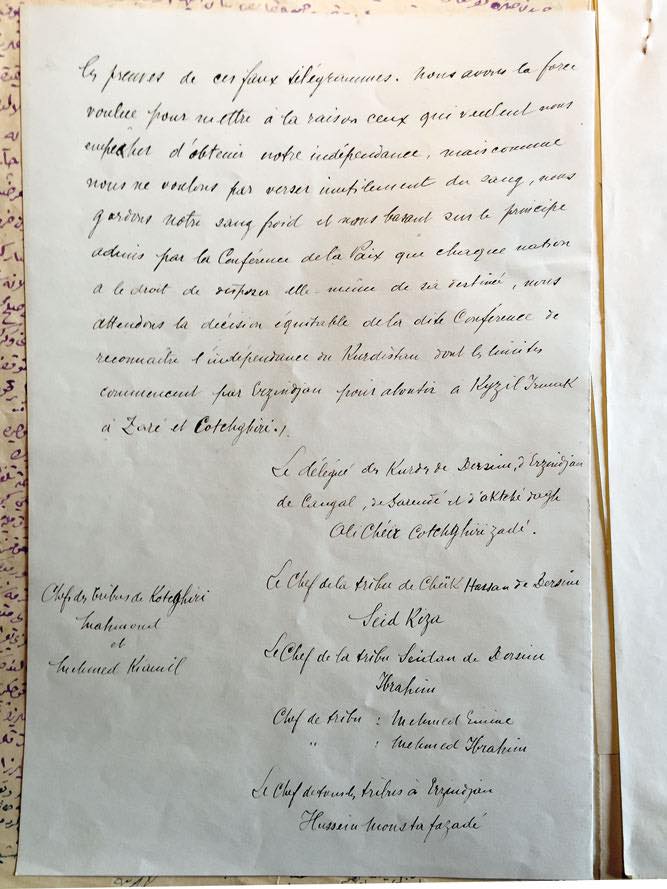 les preuves de ces faux télégrammes. Nous avons la force
voulue pour mettre à la raison ceux qui veulent nous
empêcher d'obtenir notre indépendance, mais comme
nous ne voulons pas verser inutilement du sang, nous
gardons notre sang froid et nous basant sur le principe
admis par la Conférence de la Paix que chaque nation
a le droit de disposer elle-même de sa destinée, nous
attendons la décision équitable de la dite Conférence de
reconnaître l'indépendance du Kurdistan dont les limites
commencent par Erzindjan pour aboutir à Kyzil Irmak
à Zaré et Cotchghiri./.
Le délégué des Kurdes de Dersim, d'Erzindjan
de Cangal, de et d'aktché dagh
Ali Chéir Cotchghirizadé.
Le Chef de la tribu de Cheik Hassan de Dersim
Seid Riza
Chefs des tribus de Kotchghiri
Mahmoud
et
Mehmed Kiamil
Le Chef de la tribu de Dersim
Ibrahim
Chef de tribu : Mehmed Emine
" : Mehmed Ibrahim
Le Chef de tous les tribus à Erzindjan
Hussein Moustafazadé